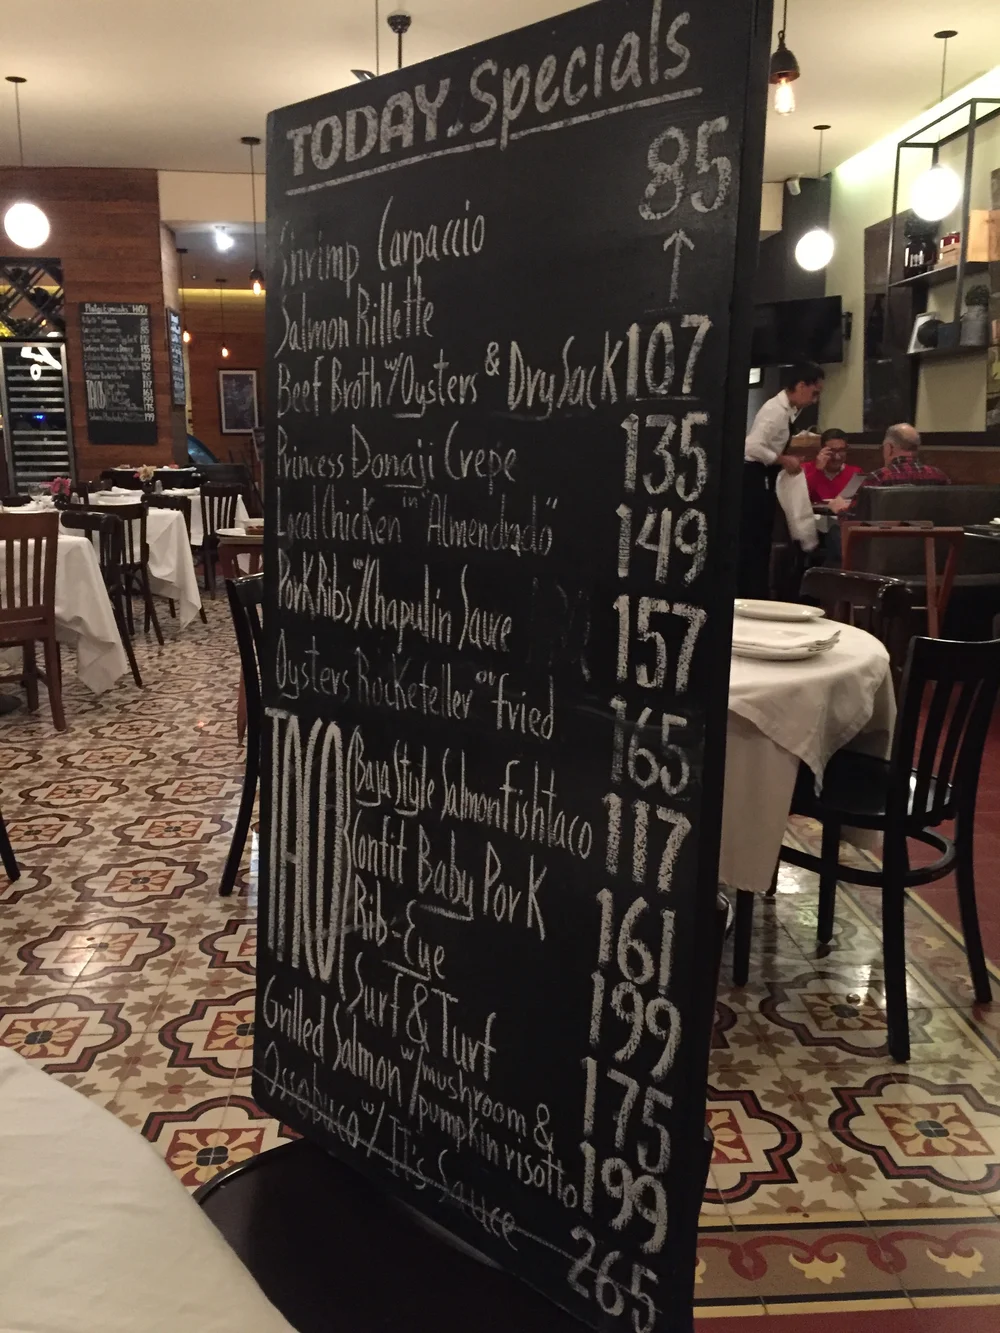 TODAY.Specials
Shrimp Carpaccio 85
Salmon Rillette ↑
Beef Broth w/Oysters & Dry Sack 107
Princess Donaji Crepe 135
Local Chicken in "Almendrado" 149
Pork Ribs w/Chapulin Sauce 157
Oysters Rockefeller or fried 165
TACO
Baja Style Salmon fish taco 117
Confit Baby Pork 161
Rib-Eye 199
Surf & Turf 175
Grilled Salmon w/mushroom & pumpkin risotto 199
Ossobuco w/ It's Sauce 265
TACO